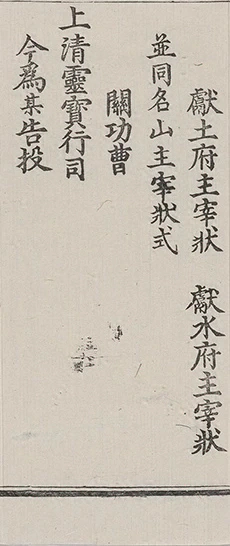 獻土府主宰狀　獻水府主宰狀
並同名山主宰狀式
關功曹
上清靈寶行司
今爲某告投